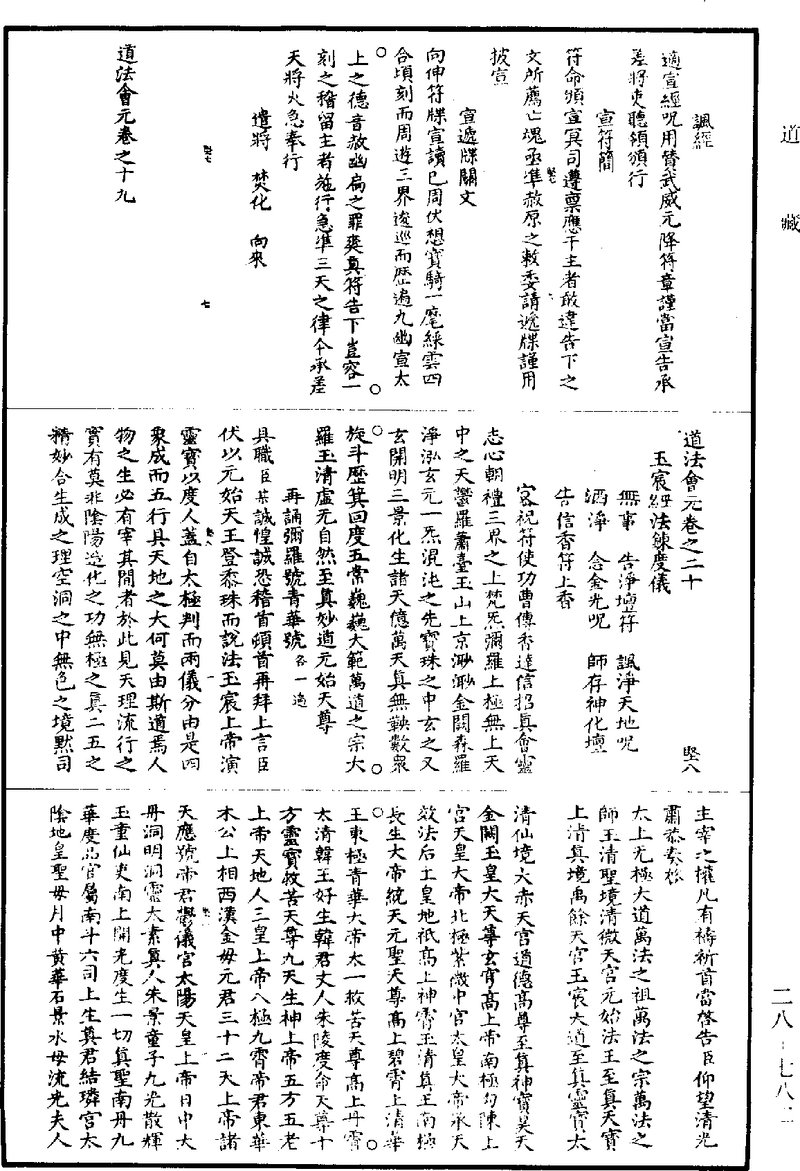 道藏
諷經
適宣經呪用贊武威元降符章謹當宣告承
差將吏聽領頒行
宣符簡
符命頒宣冥司遵稟應干主者敢違告下之
文所薦亡魂丞準赦原之敕委請遞牒謹用
披宣
宣遞牒關文
向伸符牒宣讀已周伏想寶騎一麾綵雲四
合頃刻而周遊三界逡巡而歷遍九幽宣太
上之德音赦幽扃之罪爽真符告下豈容一
刻之稽留主者施行急準三天之律令承差
天將火急奉行
遣將 焚化 向來
七
道法會元卷之十九
道法會元卷之二十 堅八
玉宸經法鍊度儀
無事 告淨壇符 諷淨天地呪
洒淨 念金光呪 師存神化壇
告信香符上香
密祝符使功曹傳香達信招真會靈
志心朝禮三界之上梵炁彌羅上極無上天
中之天鬱羅蕭臺玉山上京渺渺金闕森羅
淨泓玄元一炁混沌之先寶珠之中玄之又
玄開明三景化生諸天億萬天真無鞅數衆
旋斗歷箕回度五常巍巍大範萬道之宗大
羅玉清虛无自然至真妙道元始天尊
再誦彌羅號青華號各一遍
具職臣某誠惶誠恐稽首頓首再拜上言臣
伏以元始天王登黍珠而說法玉宸上帝演
靈寶以度人蓋自太極判而兩儀分由是四
象成而五行具天地之大何莫由斯道焉人
物之生必有宰其間者於此見天理流行之
實有莫非陰陽造化之功無極之真二五之
精妙合生成之理空洞之中無色之境默司
主宰之權凡有禱祈首當啓告臣仰望清光
肅恭奏格
太上无極大道萬法之祖萬法之宗萬法之
師玉清聖境清微天宮元始法王至真天寶
上清真境禹餘天宮玉宸大道至真靈寶太
清仙境大赤天宮道德高尊至真神寶昊天
金闕玉皇大天尊玄穹高上帝南極勾陳上
宮天皇大帝北極紫微中宮太皇大帝承天
效法后土皇地祇高上神霄玉清真王南極
長生大帝統天元聖天尊高上碧霄上清華
王東極青華大帝太一救苦天尊高上丹霄
太清韓王好生韓君丈人朱陵度命天尊十
方靈寶救苦天尊九天生神上帝五方五老
上帝天地人三皇上帝八極九霄帝君東華
木公上相西漢金母元君三十二天上帝諸
天應號帝君鬱儀宮太陽天皇上帝日中大
丹洞明洞靈太素真人朱景童子九光散輝
玉童仙吏南上開光度生一切真聖南丹九
華度品官屬南斗六司上生真君結璘宮太
陰地皇聖母月中黃華石景水母流光夫人